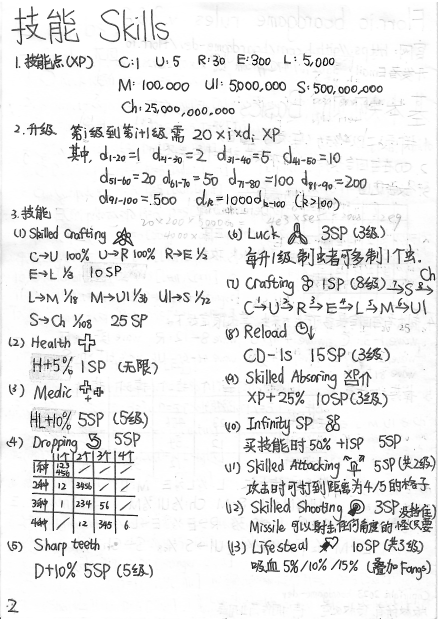 技能 Skills
1.技能点(XP) C:1 U:5 R:30 E:300 L:5,000
M:100,000 Ul:5,000,000 S:500,000,000
Ch:25,000,000,000
2.升级 第i级到第i+1级需 20×i×di XP
其中, d1-20=1 d21-30=2 d31-40=5 d41-50=10
d51-60=20 d61-70=50 d71-80=100 d81-90=200
d91-100=500 dk=1000dk-100 (k>100)
3.技能
(1) Skilled Crafting
C→U 100% U→R 100% R→E ½
E→L ⅙ 10SP
L→M 1/18 M→Ul 1/36 Ul→S 1/72
S→Ch 1/108 25SP
(2) Health
H+5% 1SP (无限)
(3) Medic
HL+10% 5SP (5级)
(4) Dropping 5SP
1个 2个 3个 4个
1种 123456 / / /
2种 12 3456 / /
3种 1 234 56 /
4种 / 12 345 6
(5) Sharp teeth
D+10% 5SP (5级)
(6) Luck 3SP (3级)
每升1级,制虫者可多制1个虫.
(7) Crafting 1SP (8级)
C→1 U→2 R→3 E→4 L→5 M→6 Ul →7 S →8 Ch
(8) Reload
CD-1s 15SP (3级)
(9) Skilled Absoring XP
XP+25% 10SP (3级)
(10) Infinity SP
买技能时50% +1SP 5SP
(11) Skilled Attacking 5SP (共2级)
攻击时可打到距离为4/5的格子
(12) Skilled Shooting 3SP
Missile 可以射击任何角度的怪
(13) Lifesteal 10SP (共3级)
吸血 5%/10%/15% (叠加Fangs)
2